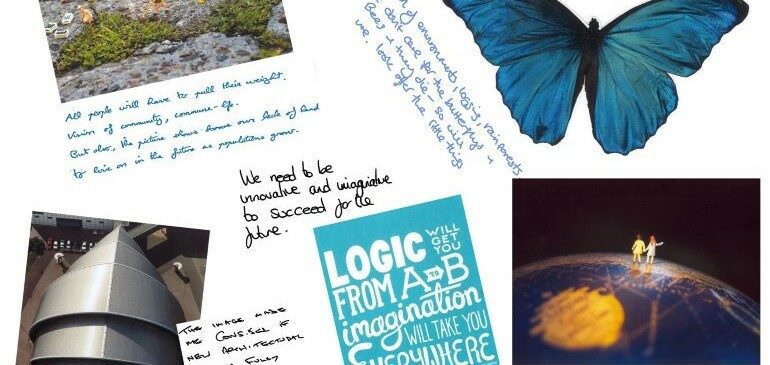 All people will have to pull their weight.
Vision of community, commune-life.
But also, the picture shows homes our lack of land
to live on in the future as populations grow.
environments, losing rainforests
don't care for the butterflys +
Bees + they die - so will
we. look after the little things
We need to be
innovative and imaginative
to succeed for the
future.
LOGIC WILL GET YOU
FROM A TO B
imagination
WILL TAKE YOU
EVERYWHERE
THE IMAGE MADE
ME CONSIDER IF
NEW ARCHITECTURAL
FULLY